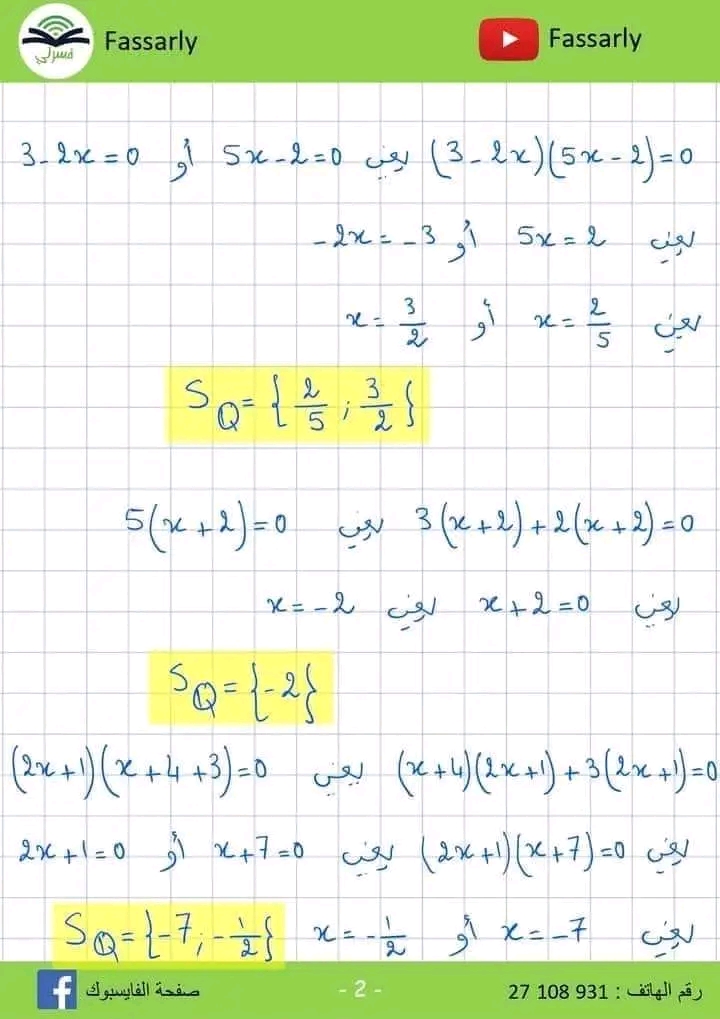 فسرلي Fassarly Fassarly
(3-2x)(5x-2)=0 يعني 5x-2=0 أو 3-2x=0
يعني 5x=2 أو -2x=-3
يعني x=2/5 أو x=3/2
S_Q={2/5 ; 3/2}
3(x+2)+2(x+2)=0 يعني 5(x+2)=0
يعني x+2=0 يعني x=-2
S_Q={-2}
(x+4)(2x+1)+3(2x+1)=0 يعني (2x+1)(x+4+3)=0
يعني (2x+1)(x+7)=0 يعني x+7=0 أو 2x+1=0
يعني x=-7 أو x=-1/2 S_Q={-7; -1/2}
رقم الهاتف : 931 108 27 - 2 - صفحة الفايسبوك